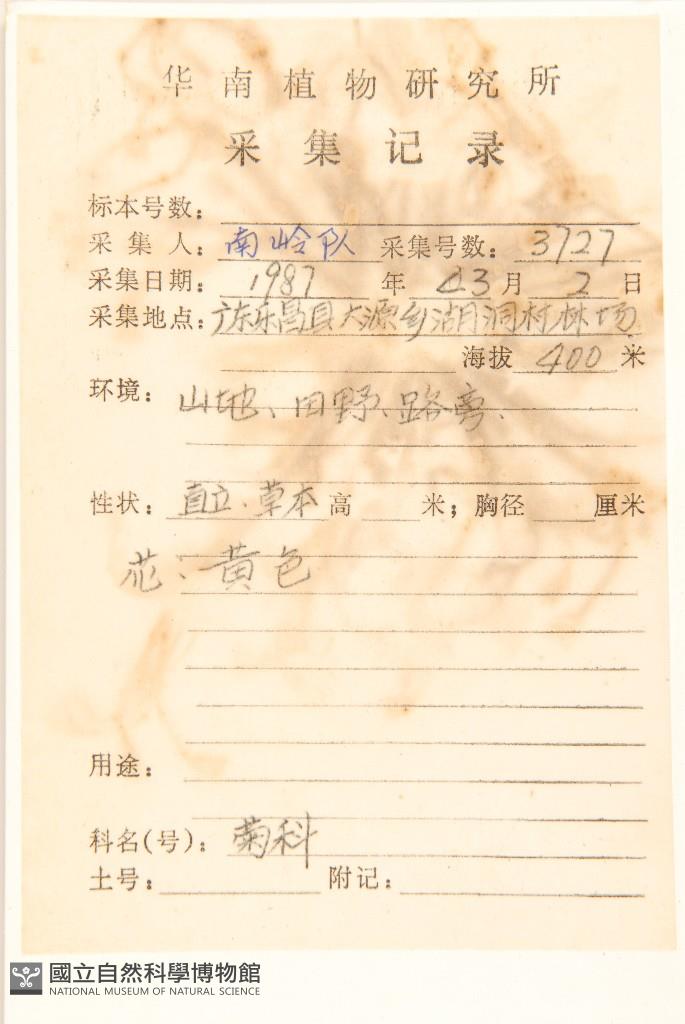 华南植物研究所
采集记录
标本号数：
采集人：南岭队 采集号数：3727
采集日期：1987年 3月2日
采集地点：广东乐昌县大源乡湖洞村林场
海拔400米
环境：山地、田野、路旁、
性状：直立、草本高 米；胸径 厘米
花：黄色
用途：
科名(号)：菊科
土号： 附记：
國立自然科學博物館
NATIONAL MUSEUM OF NATURAL SCIENCE